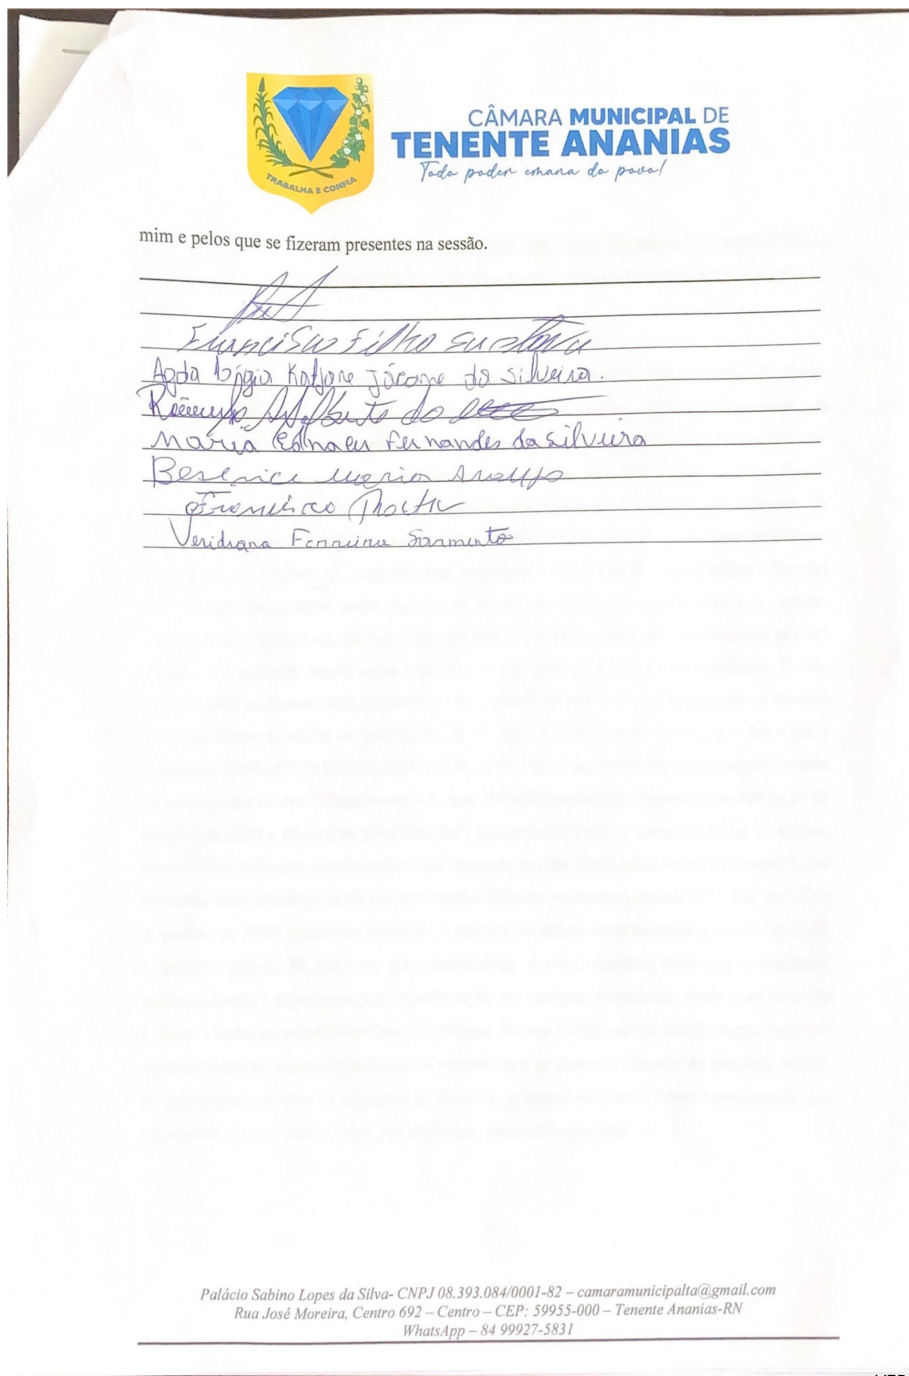 CÂMARA MUNICIPAL DE
TENENTE ANANIAS
Todo poder emana do povo!
TRABALHA E CONFIA
mim e pelos que se fizeram presentes na sessão.
Francisco Filho
Agda Lígia Katjane Jácome da Silveira.
Maria Ednaeu Fernandes da Silveira
Berenice Maria Araujo
Francisco
Veridiana Ferreira Sarmento
Palácio Sabino Lopes da Silva- CNPJ 08.393.084/0001-82 – camaramunicipalta@gmail.com
Rua José Moreira, Centro 692 – Centro – CEP: 59955-000 – Tenente Ananias-RN
WhatsApp – 84 99927-5831